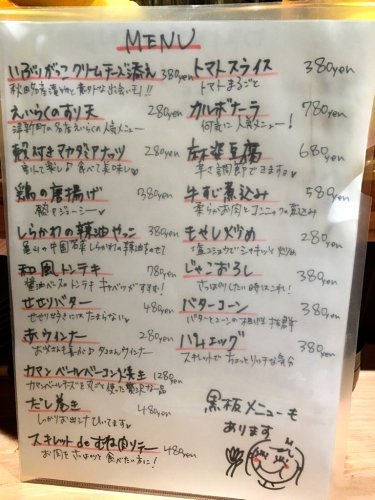 MENU
いぶりがっこ クリームチーズ添え 380yen
秋田名産漬物と意外な出会いです!!
えいらくのすり天 280yen
津新町の名店えいらくの人気メニュー
殻付きマカダミアナッツ 280yen
割って楽しい♪食べて美味しい♡
鶏の唐揚げ 380yen
熱々ジューシー♡
しらかわの辣油やっこ 380yen
亀山の中国名菜しらかわの辣油のせて
和風トンテキ 780yen
醤油ベースのトンテキ キャベツがすすむ!
せせりバター 480yen
せせり好きにはたまらない♡
赤ウインナー 280yen
おじさんも喜ぶ♪タコさんウインナー
カマンベールベーコンと失主 1280yen
カマンベールチーズを丸ごと使った贅沢な一品
だし巻き 480yen
しっかりお出汁ひいてます♡
スキレット de むね肉ソテー 480yen
お肉をさっぱりと食べたい方に!
トマトスライス 380yen
トマトまるごと
カルボナーラ 780yen
何気に人気メニュー!
麻婆豆腐 680yen
辛さ調節できますよ♡
牛すじ煮込み 580yen
柔らかお肉とコンニャクの煮込み
もやし炒め 280yen
塩コショウでシャキッと炒め
じゃこおろし 380yen
さっぱりしたい時はこれ!
バターコーン 380yen
バターとコーンの相性抜群
ハムエッグ 380yen
スキレットでちょっとリッチな気分
黒板メニューも
あります